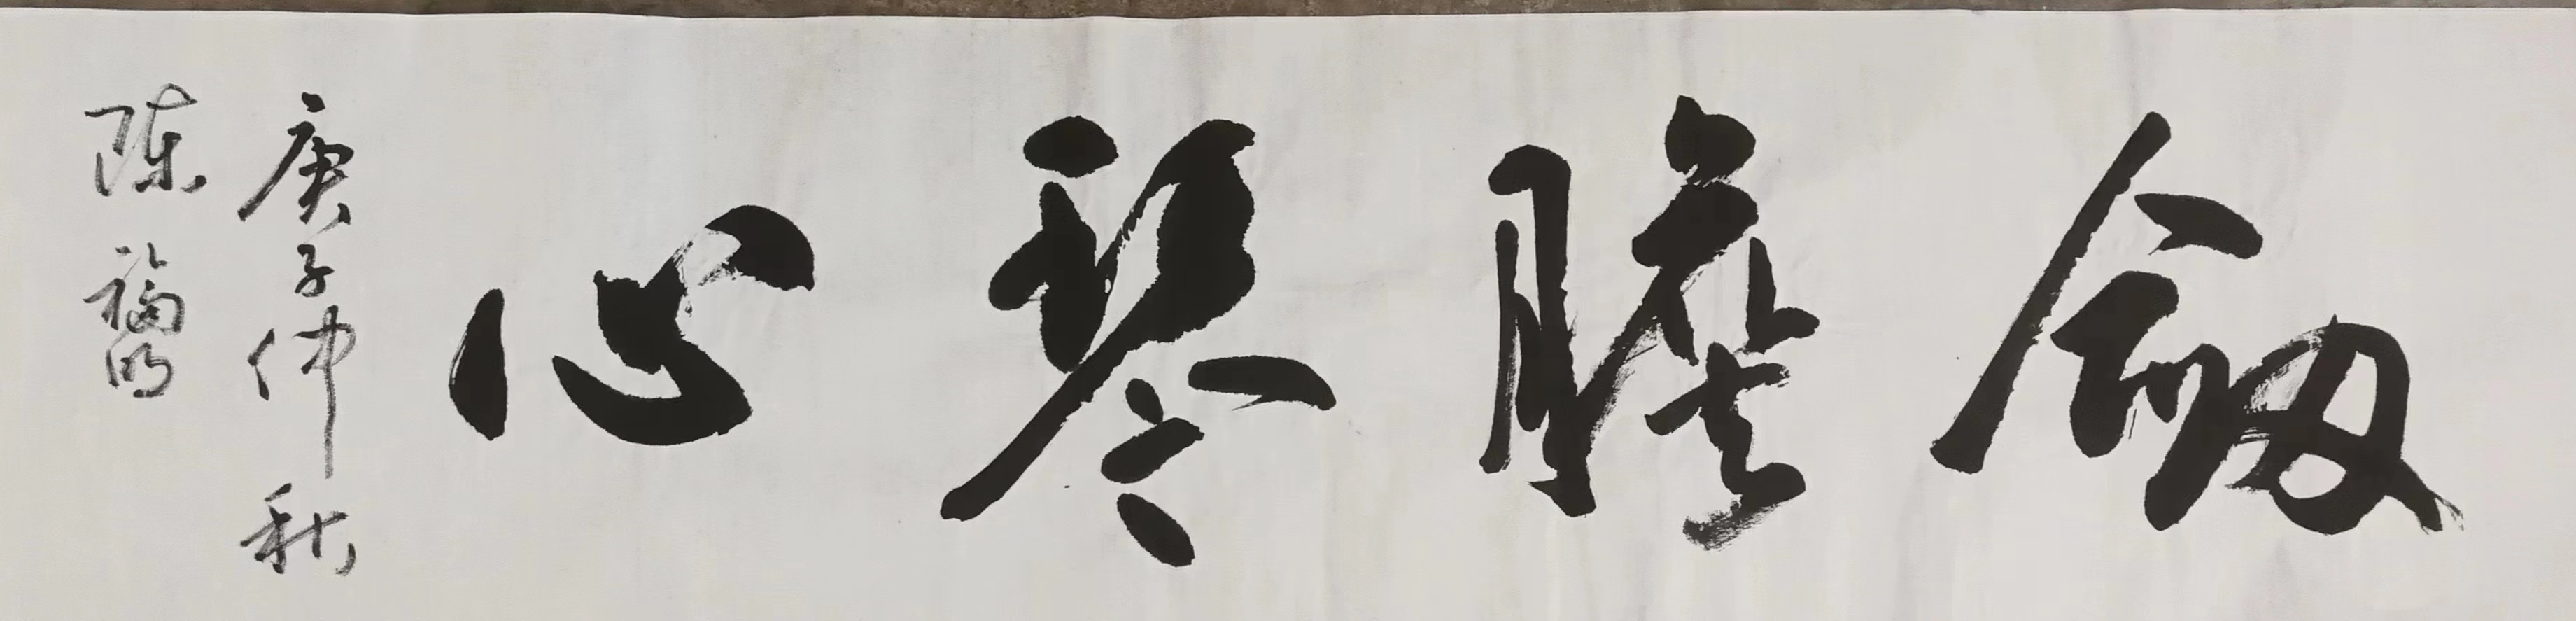 劔膽琴心
庚子仲秋
陈福明